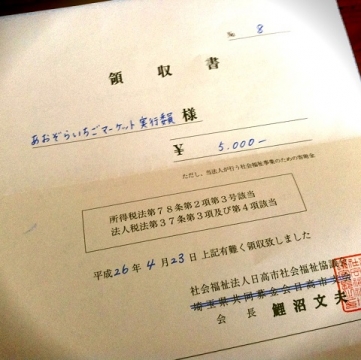 № 8
領収書
あおぞらいちごマーケット実行委員 様
¥ 5.000-
ただし、当法人が行う社会福祉事業のための寄附金
所得税法第78条第2項第3号該当
法人税法第37条第3項及び第4項該当
平成26年4月23日 上記有難く領収致しました
社会福祉法人日高市社会福祉協議会
埼玉県共同募金会日高市支会
会長 鯉沼文夫